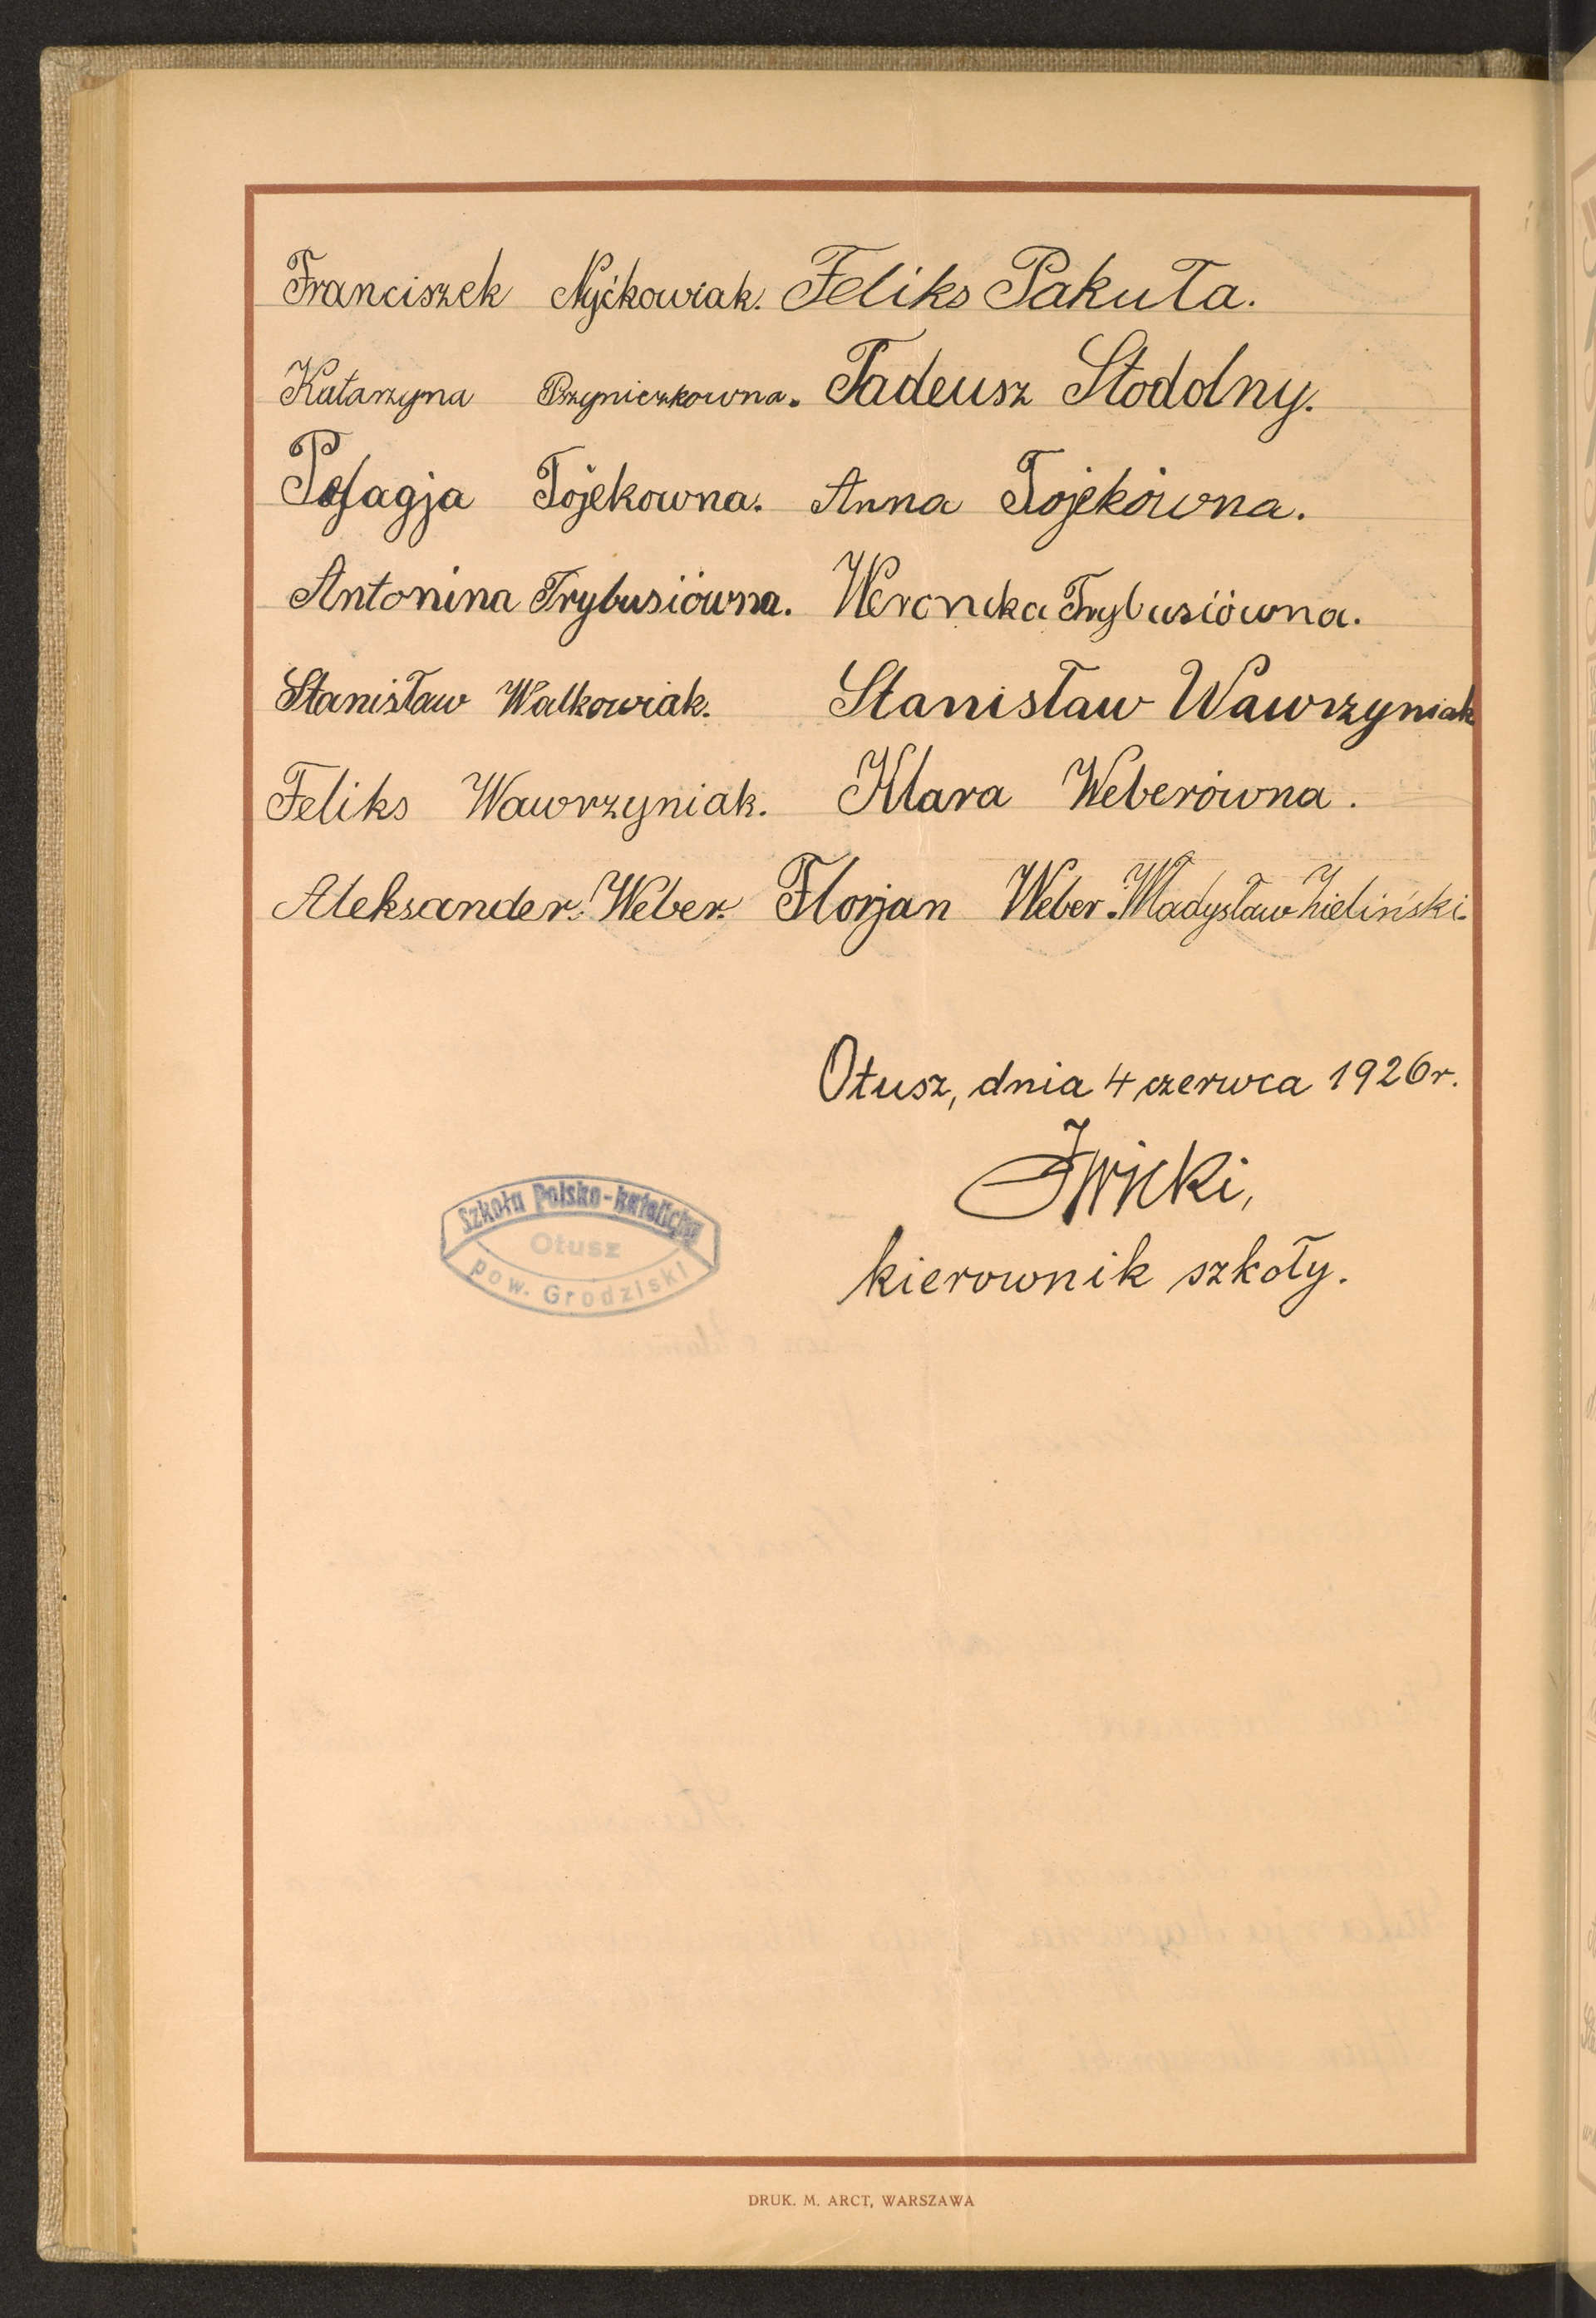 Franciszek Nyćkowiak. Feliks Pakuła.
Katarzyna Przyniczkowna. Tadeusz Stodolny.
Pelagja Tojekowna. Anna Tojekówna.
Antonina Trybusiówna. Weronika Trybusiówna.
Stanisław Walkowiak. Stanisław Wawrzyniak
Feliks Wawrzyniak. Klara Weberówna.
Aleksander. Weber. Florjan Weber. Władysław Zieliński.
Otusz, dnia 4 czerwca 1926 r.
kierownik szkoły.
Szkoła Polsko-katolicka
Otusz
pow. Grodziski
DRUK. M. ARCT, WARSZAWA